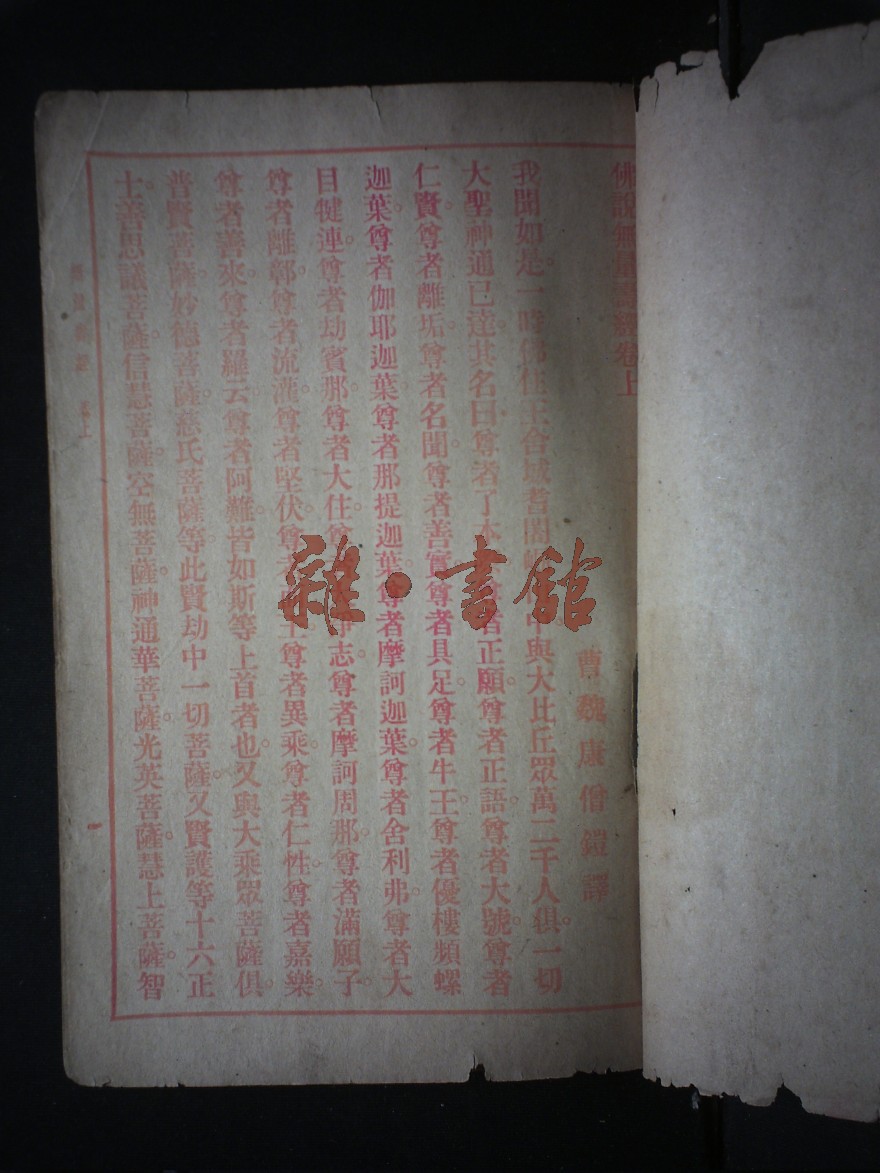 佛說無量壽經卷上
曹魏康僧鎧譯
我聞如是一時佛住王舍城耆闍崛山中與大比丘眾萬二千人俱。一切
大聖神通已達。其名曰尊者了本 尊者正願。尊者正語。尊者大號。尊者
仁賢。尊者離垢。尊者名聞。尊者善實。尊者具足。尊者牛王。尊者優樓頻螺
迦葉。尊者伽耶迦葉。尊者那提迦葉。尊者摩訶迦葉。尊者舍利弗。尊者大
目犍連。尊者劫賓那。尊者大住。尊者 淨志。尊者摩訶周那。尊者滿願子。
尊者離鄣。尊者流灌。尊者堅伏。尊者 王尊者異乘。尊者仁性。尊者嘉樂。
尊者善來。尊者羅云。尊者阿難。皆如斯等上首者也。又與大乘眾菩薩俱。
普賢菩薩。妙德菩薩。慈氏菩薩等。此賢劫中一切菩薩。又賢護等十六正
士。善思議菩薩。信慧菩薩。空無菩薩。神通華菩薩。光英菩薩。慧上菩薩。智
雜·書館